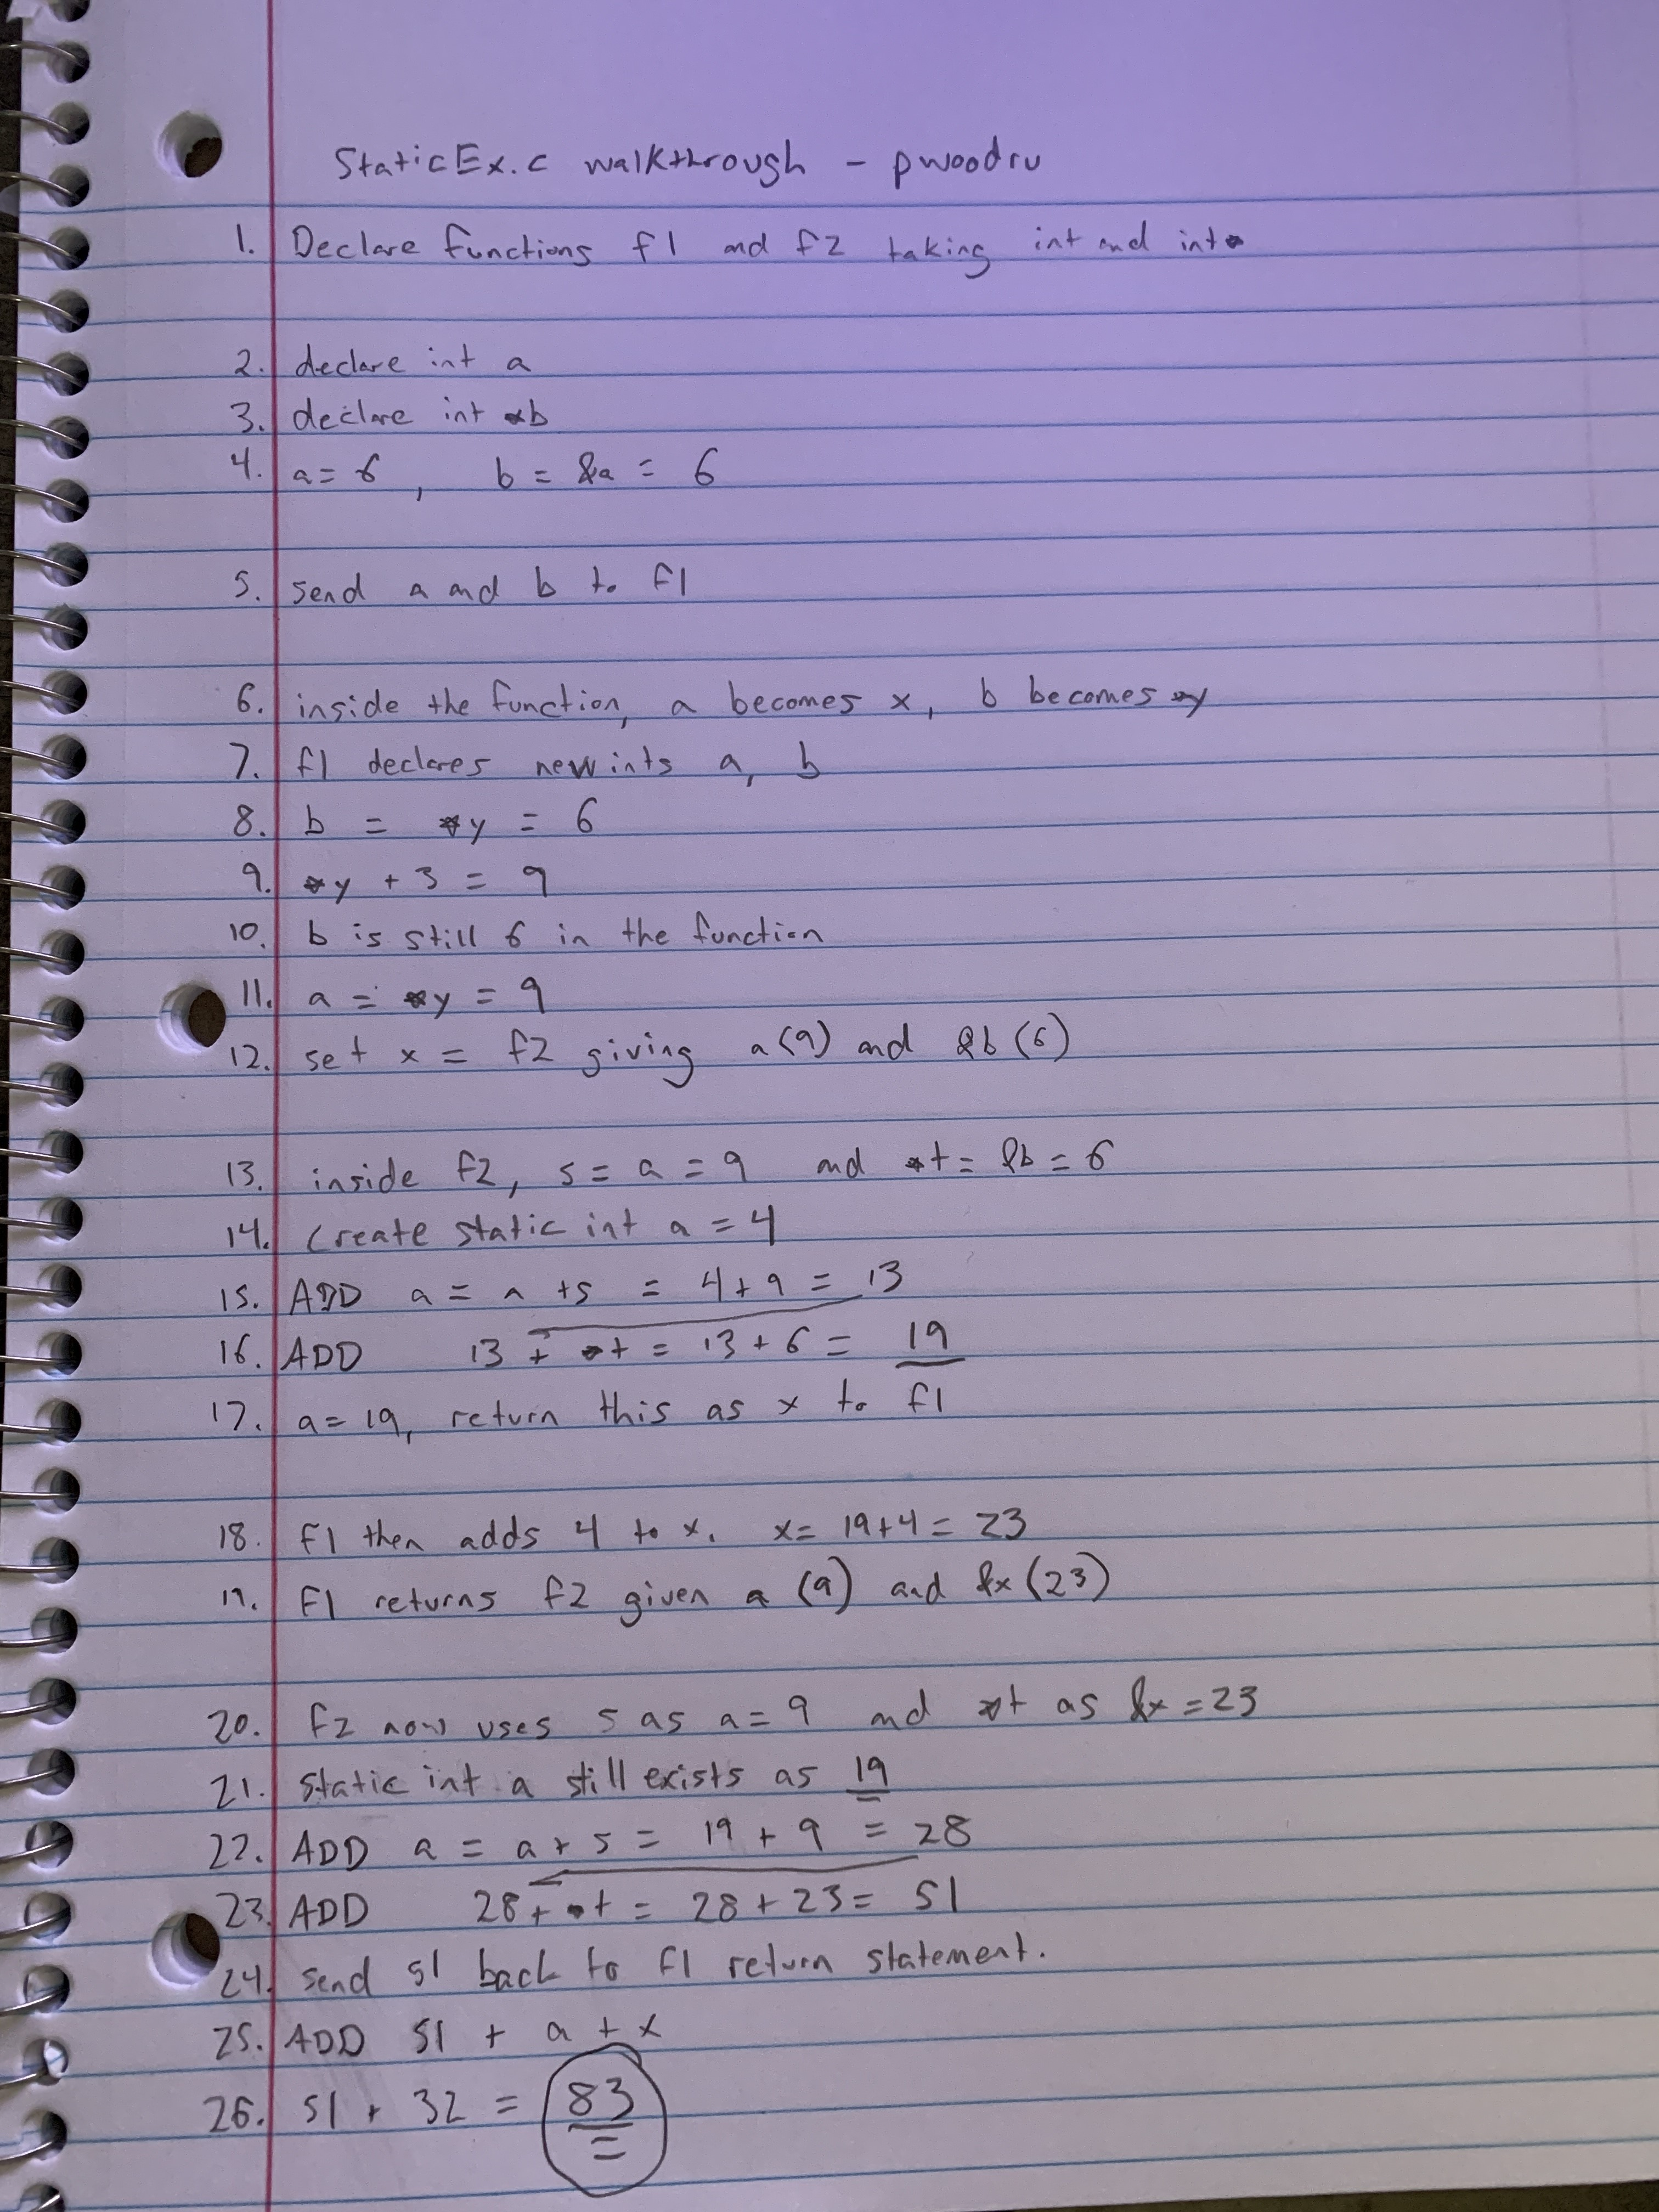 StaticEx.c walkthrough - pwoodru
1. Declare functions f1 and f2 taking int and int*
2. declare int a
3. declare int *b
4. a = 6, b = &a = 6
5. send a and b to f1
6. inside the function, a becomes x, b becomes *y
7. f1 declares new ints a, b
8. b = *y = 6
9. *y + 3 = 9
10. b is still 6 in the function
11. a = *y = 9
12. set x = f2 giving a(9) and &b(6)
13. inside f2, s = a = 9 and *t = &b = 6
14. Create static int a = 4
15. ADD a = a + s = 4 + 9 = 13
16. ADD 13 + *t = 13 + 6 = 19
17. a = 19, return this as x to f1
18. f1 then adds 4 to x. x = 19 + 4 = 23
19. F1 returns f2 given a (9) and &x (23)
20. f2 now uses s as a = 9 and *t as &x = 23
21. static int a still exists as 19
22. ADD a = a + s = 19 + 9 = 28
23. ADD 28 + *t = 28 + 23 = 51
24. send 51 back to f1 return statement.
25. ADD 51 + a + x
26. 51 + 32 = 83